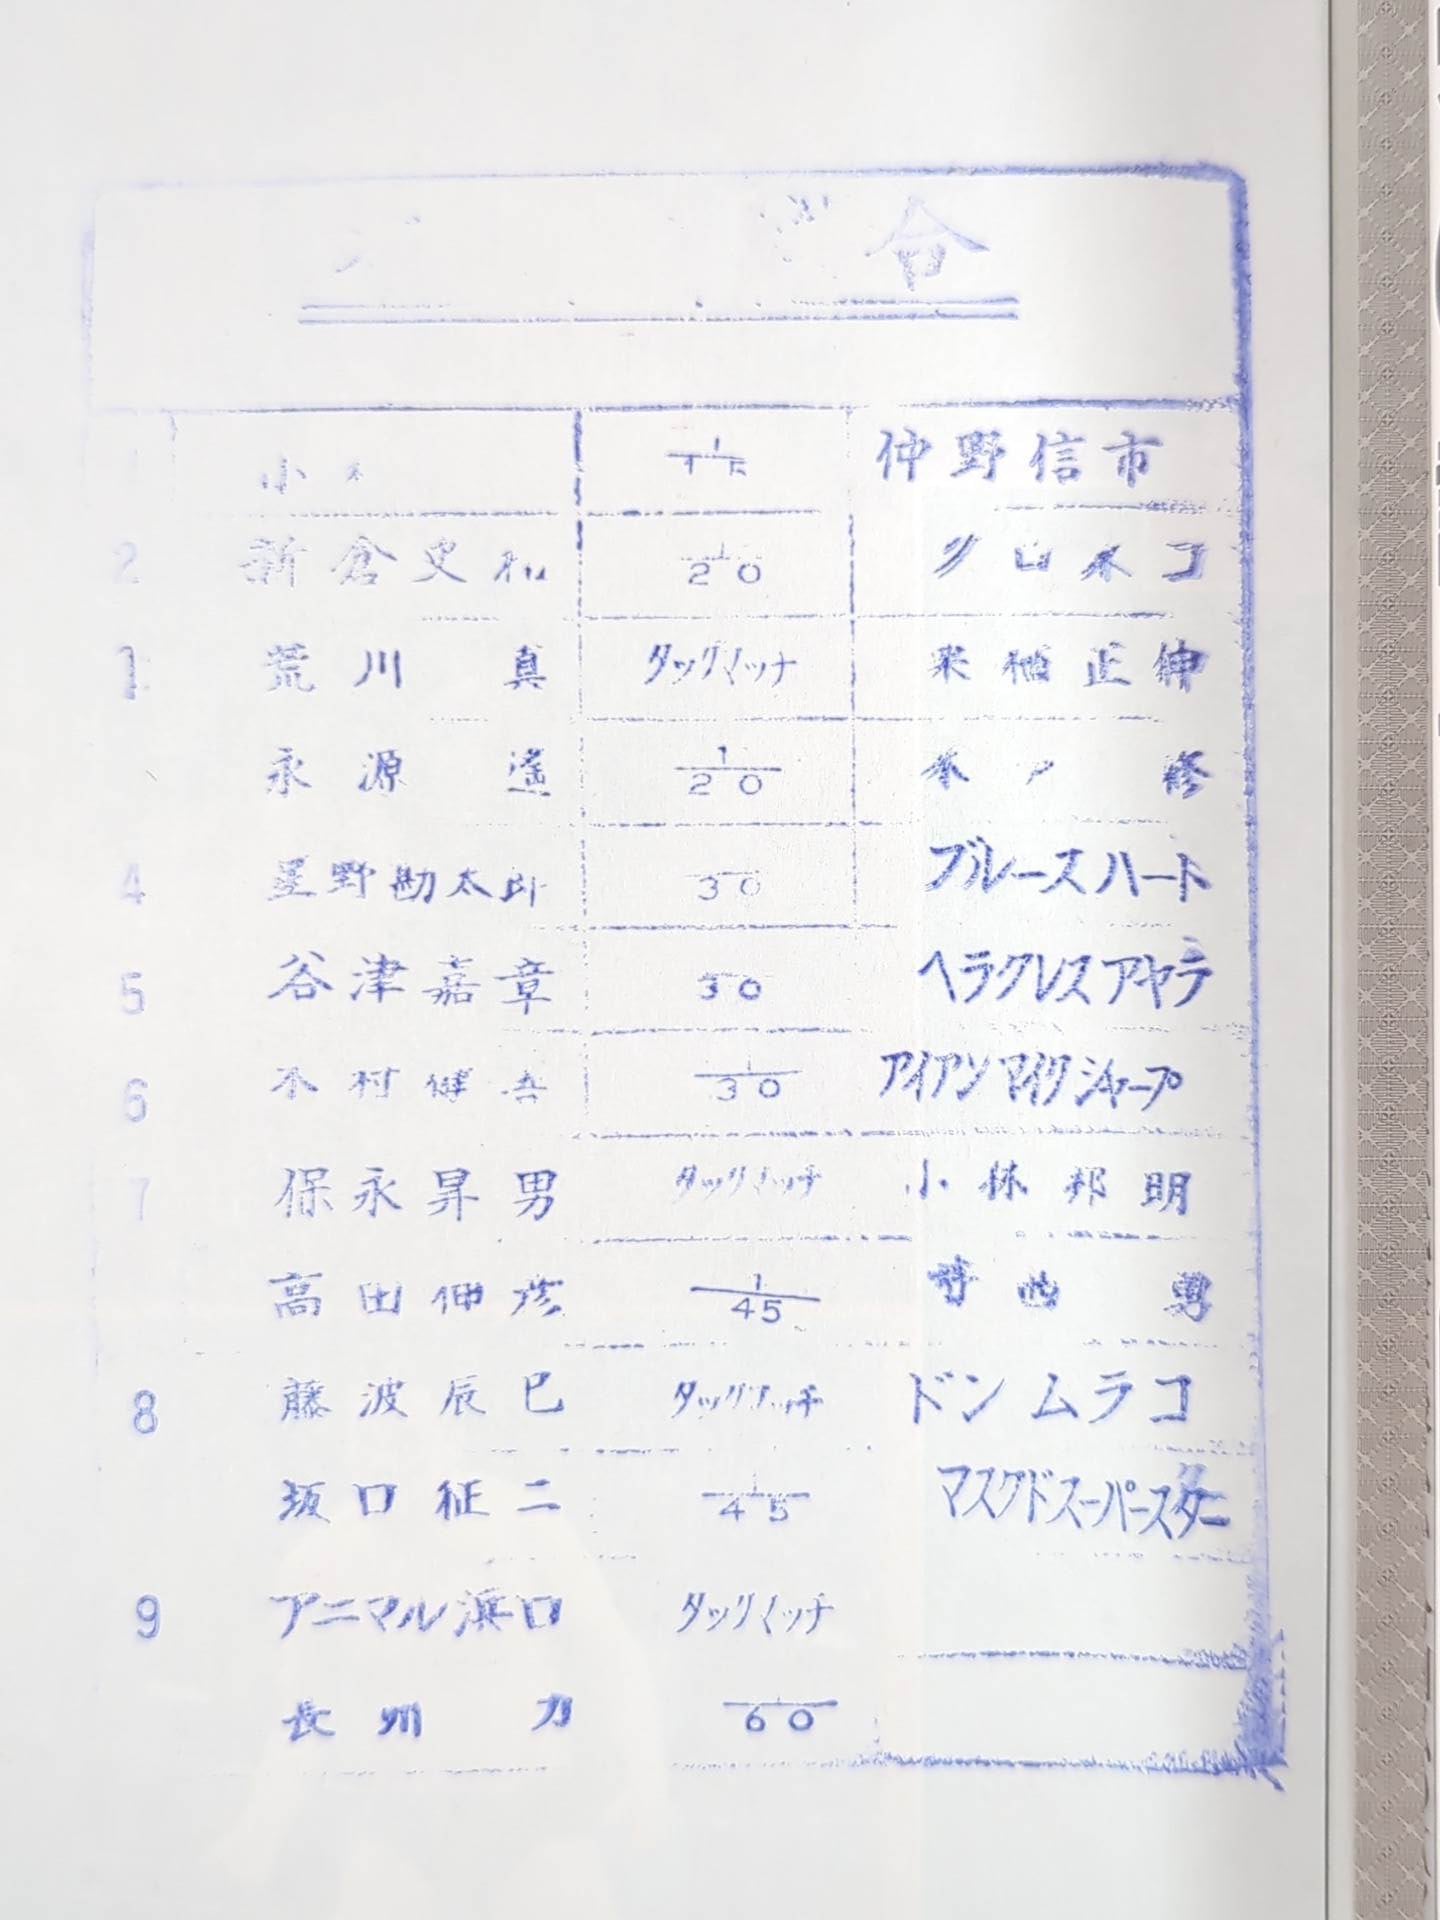 合
小 1/15 仲野信市
2 新倉史和 1/20 クロネコ
荒川 真 タッグマッチ 来栖正伸
永源 遙 1/20 木 修
4 星野勘太郎 30 ブルースハート
5 谷津嘉章 30 ヘラクレスアヤラ
6 木村健吾 1/30 アイアンマイクシャープ
7 保永昇男 タッグマッチ 小林邦明
高田伸彦 1/45 寺西 勇
8 藤波辰巳 タッグマッチ ドンムラコ
坂口征二 1/45 マスクドスーパースター
9 アニマル浜口 タッグマッチ
長州 力 1/60